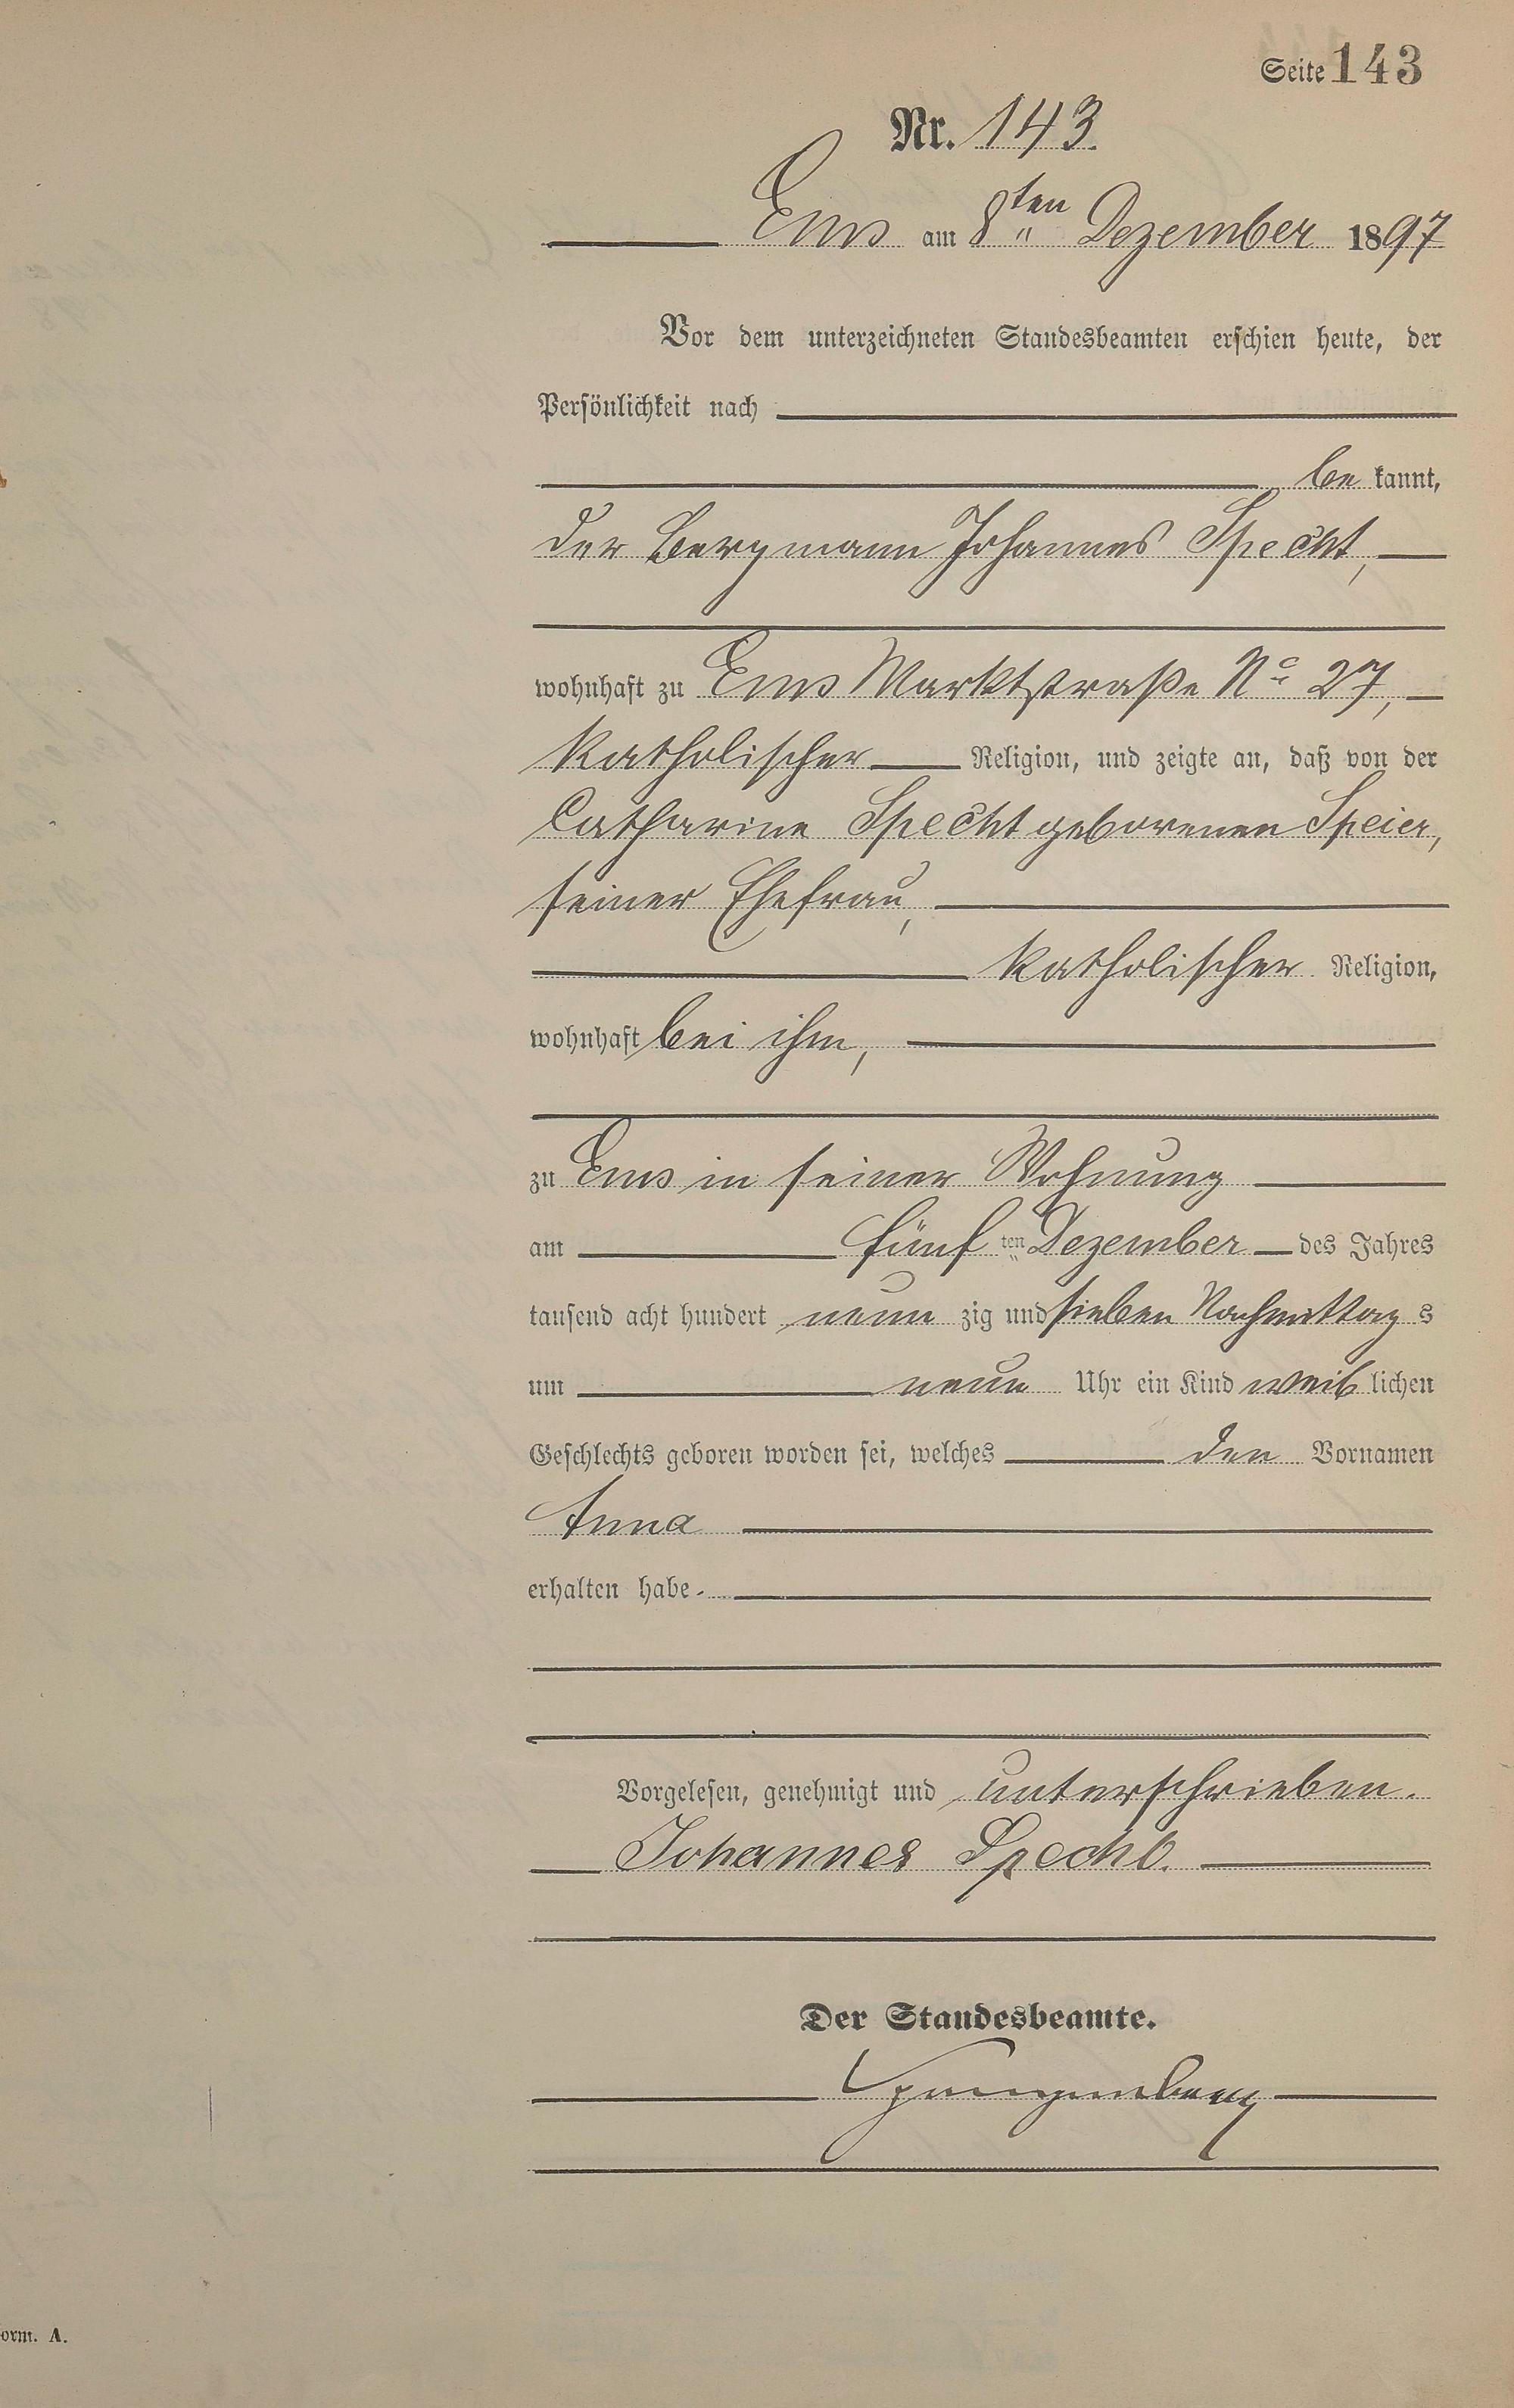 Seite 143
Nr. 143.
Ems am 8ten Dezember 1897
Vor dem unterzeichneten Standesbeamten erschien heute, der
Persönlichkeit nach
be kannt,
der Bergmann Johannes Specht,
wohnhaft zu Ems Marktstraße No 27,
katholischer Religion, und zeigte an, daß von der
Catharine Specht geborenen Speier,
seiner Ehefrau,
katholischer Religion,
wohnhaft bei ihm,
zu Ems in seiner Wohnung
am fünf ten Dezember des Jahres
tausend acht hundert neun zig und sieben Nachmittag s
um neun Uhr ein Kind weib lichen
Geschlechts geboren worden sei, welches den Vornamen
Anna
erhalten habe.
Vorgelesen, genehmigt und unterschrieben.
Johannes Specht.
Der Standesbeamte.
orm. A.